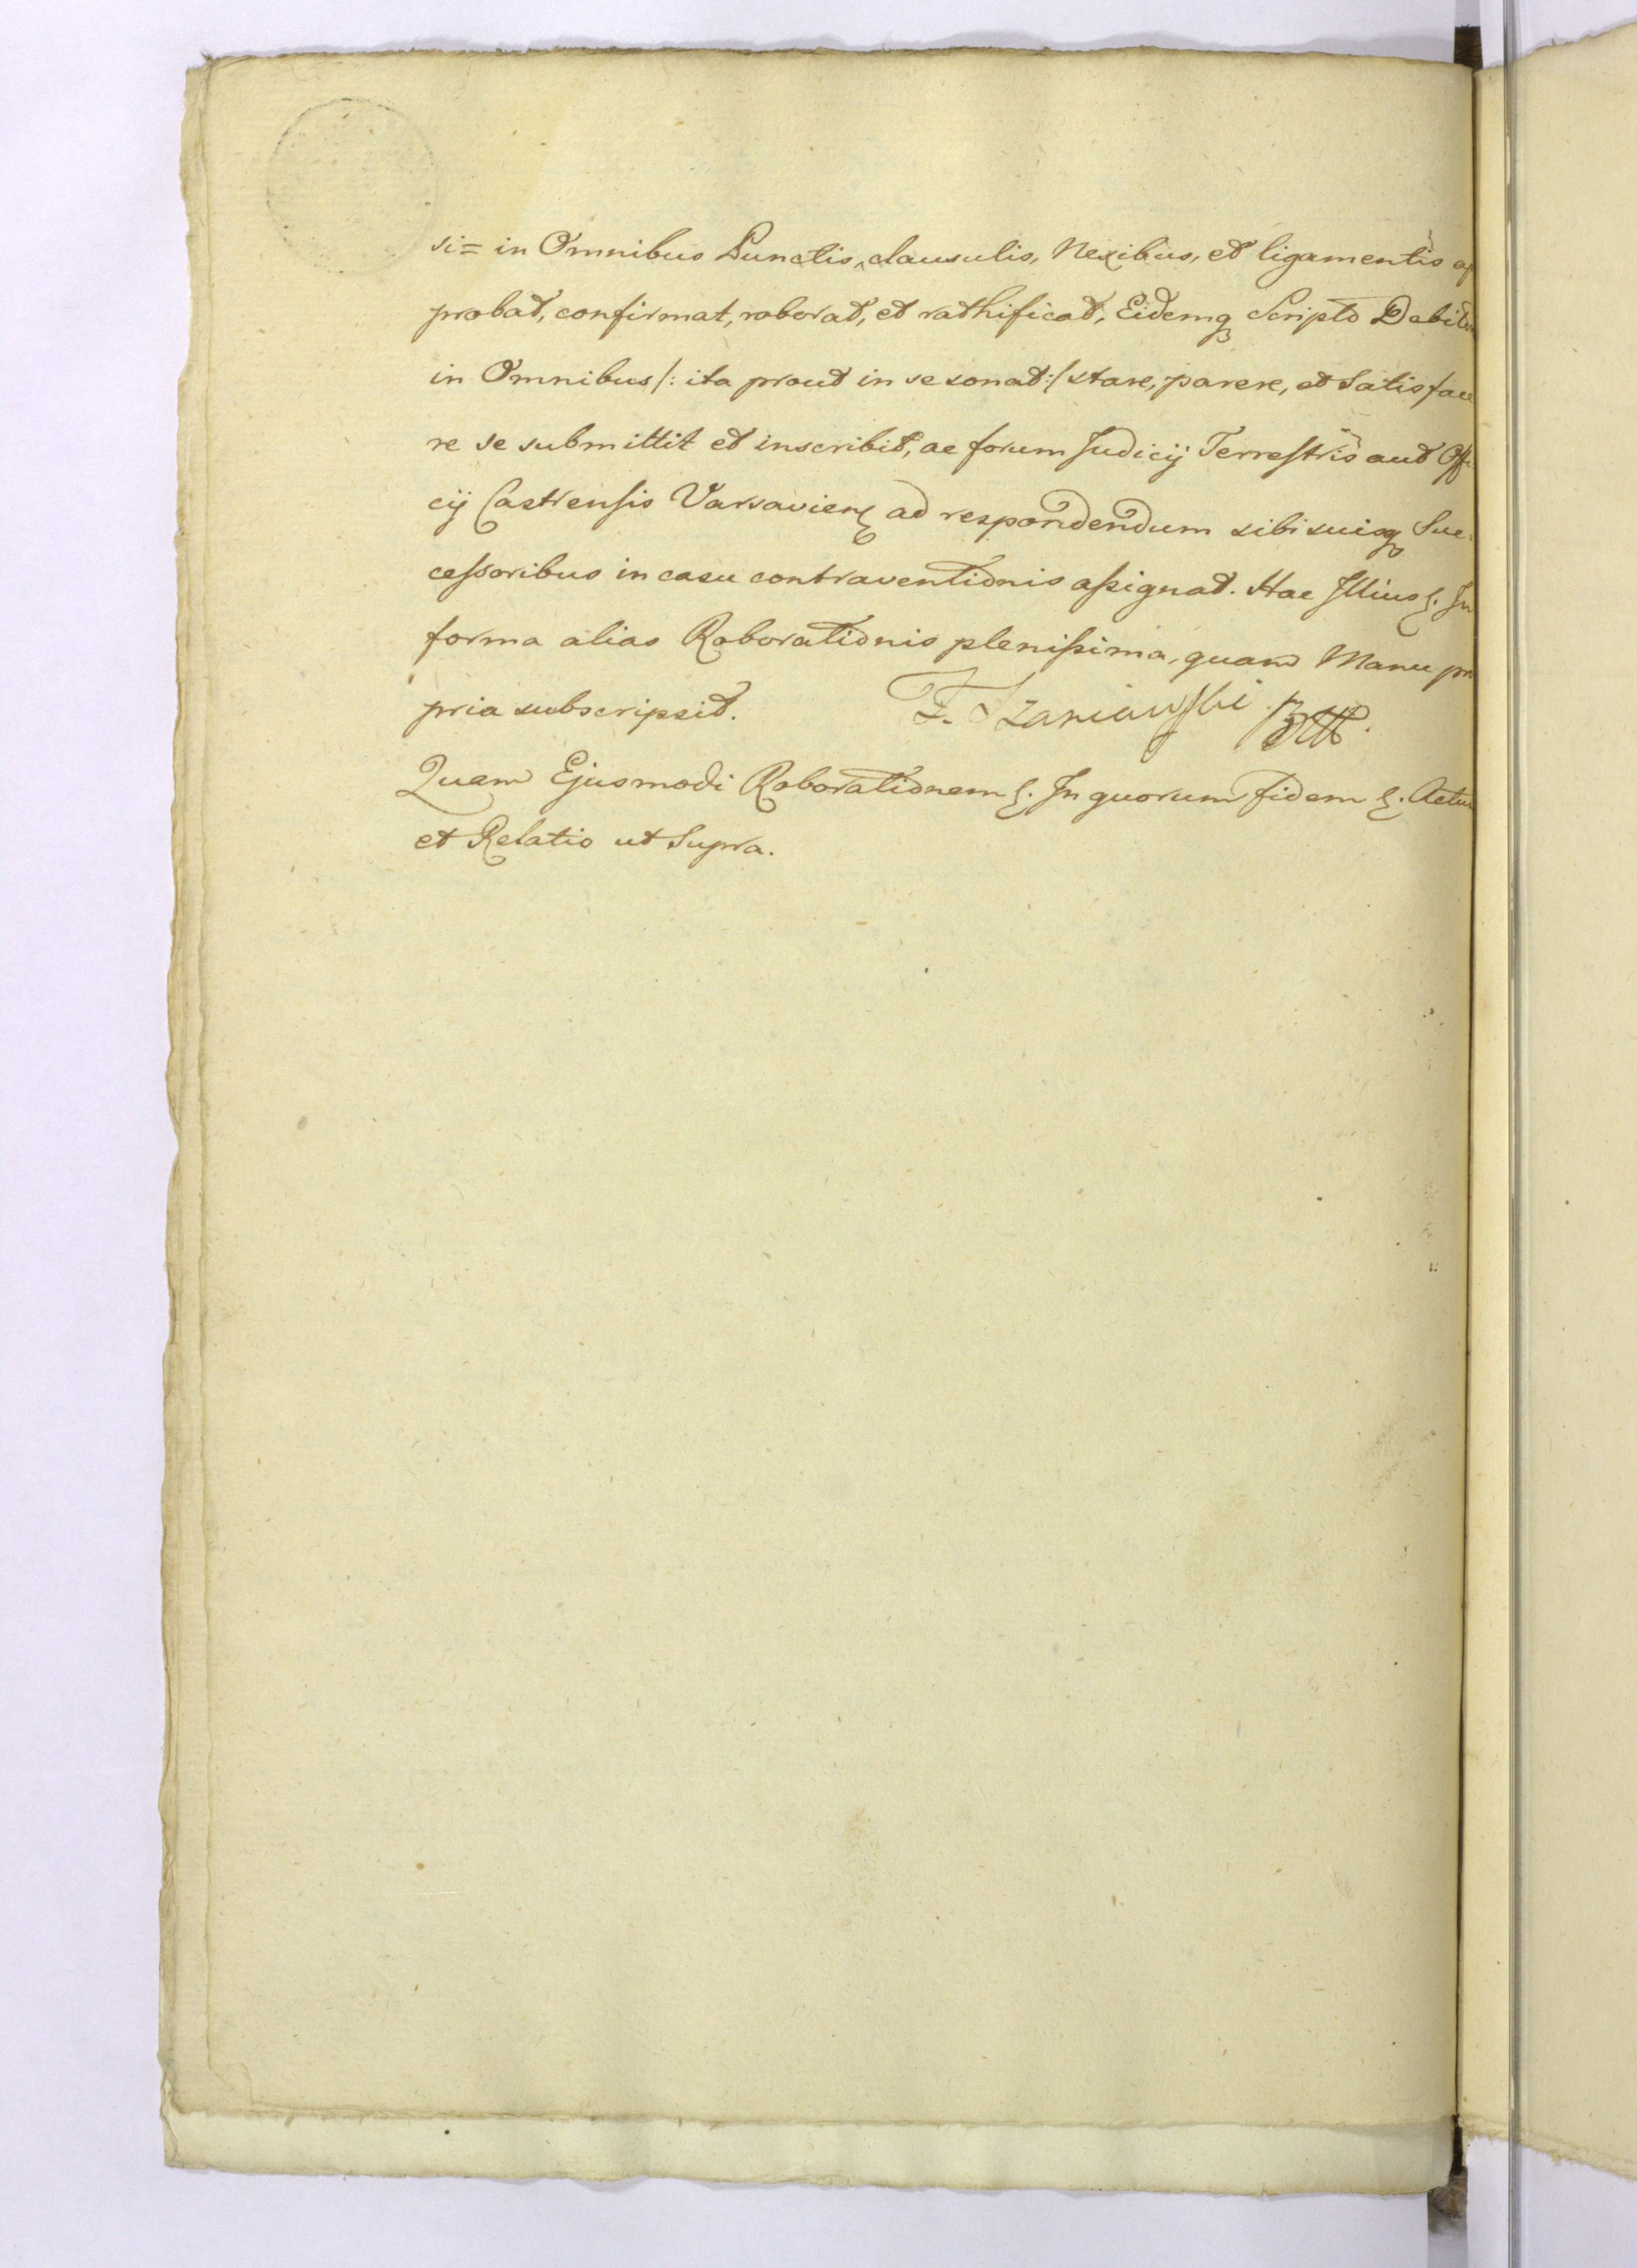 si= in Omnibus Punctis, clausulis, Nexibus, et ligamentis ap
probat, confirmat, roborat, et rathificat, Eidemq Scripto Debito
in Omnibus /: ita prout in se sonat :/ stare, parere, et Satisface
re se submittit et inscribit, ac forum Judicij Terrestris aut Offi
cij Castrensis Varsavien ad respondendum sibi suisq Suc=
cessoribus in casu contraventionis assignat. Hac Illius. In
forma alias Roborationis plenissima, quam Manu pro
pria subscripsit. F. Szaniawski
Quam Ejusmodi Roborationem. In quorum fidem. Actum
et Relatio ut Supra.